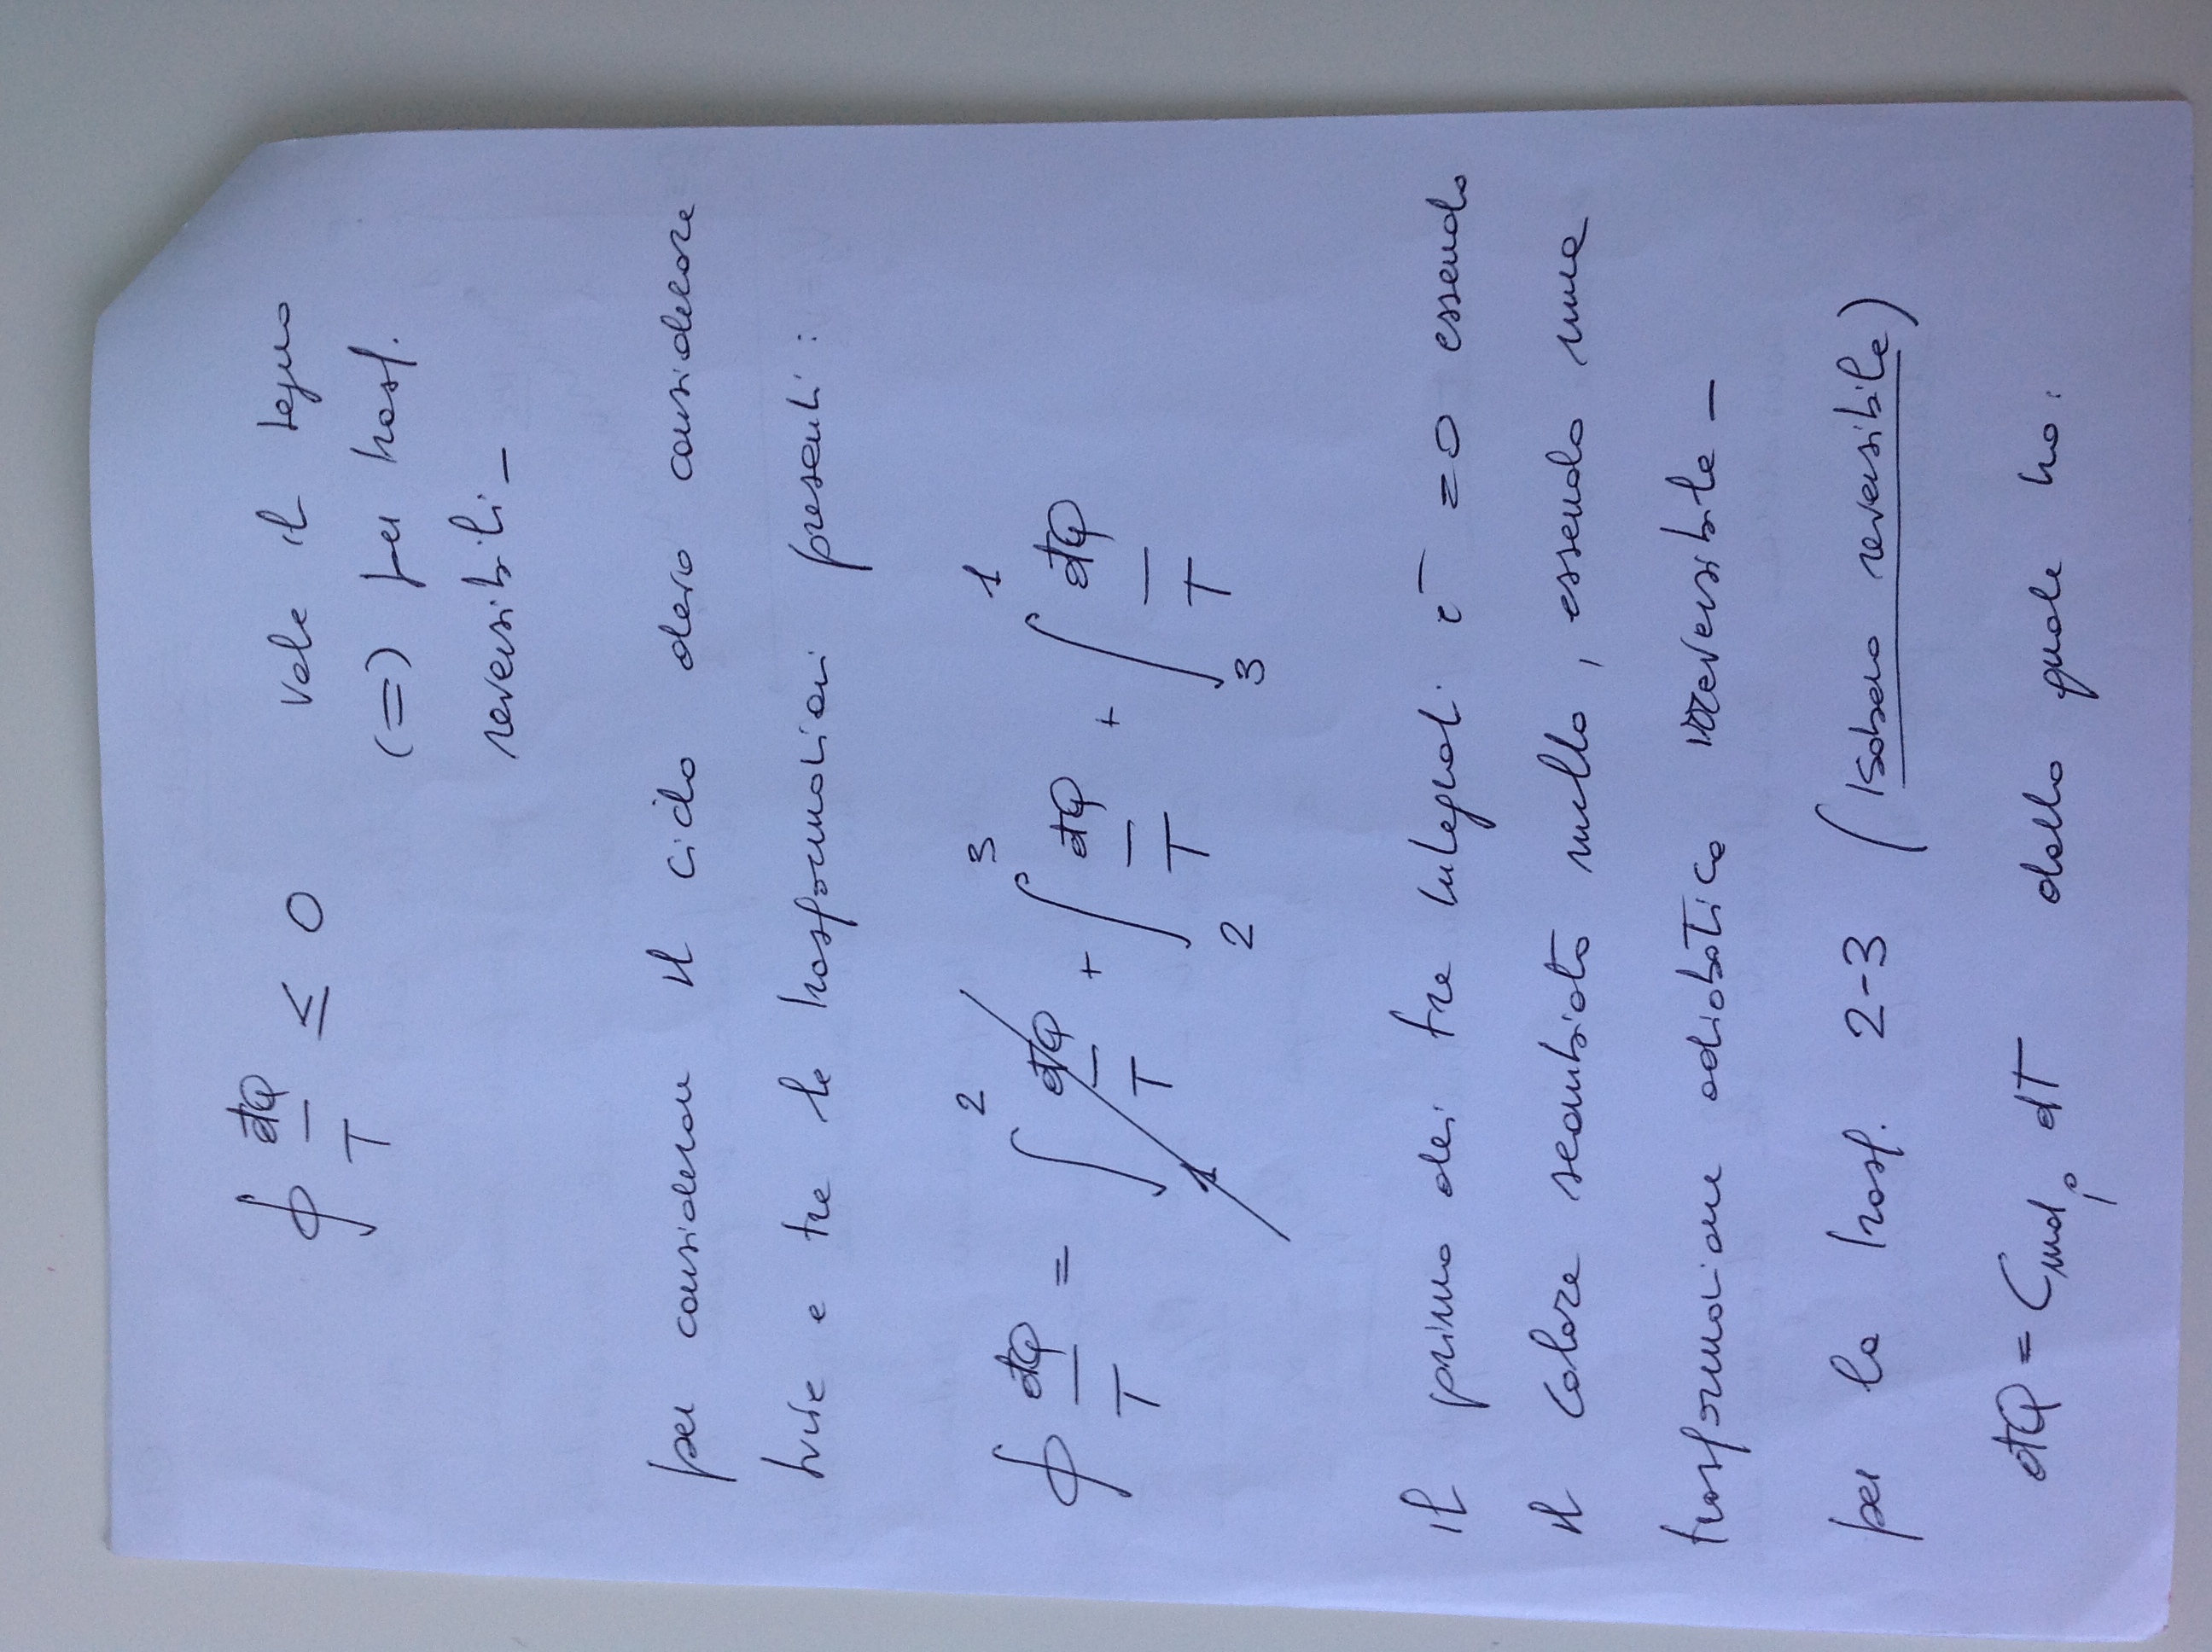 ∮ đQ/T ≤ 0 vale il segno
(=) per trasf.
reversibili –
per considerare il ciclo devo considerare
tutte e tre le trasformazioni presenti :
∮ đQ/T = ∫₁² đQ/T + ∫₂³ đQ/T + ∫₃¹ đQ/T
il primo dei tre integrali è =0 essendo
il calore scambiato nullo, essendo una
trasformazione adiabatica irreversibile –
per la trasf. 2-3 (Isobara reversibile)
đQ = Cmol,p dT dalla quale ho: